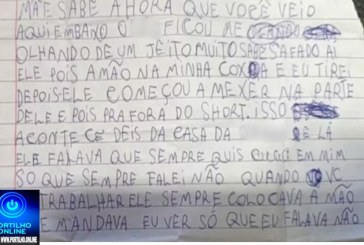 MÃE SABE AHORA QUE VOPÊ VEIO
AQUI EMBAIXO O FICOU ME
OLHANDO DE UM JEITO MUITO SAFADO AI
ELE POIS A MÃO NA MINHA COXA E EU TIREI
DEPOIS ELE COMEÇOU A MEXER NA PARTE
DELE E POIS PRA FORA DO SHORT. ISSO
ACONTECE DÊIS DA CASA DA LÁ
ELE FALAVA QUE SEMPRE QUIS EM MIM
SO QUE SEMPRE FALEI NÃO QUANDO VC
TRABALHAR ELE SEMPRE COLOCAVA A MÃO
E MANDAVA EU VER SÓ QUE EU FALAVA NÃO
PORTILHO
ONLINE
PORTILHO
ONLINE